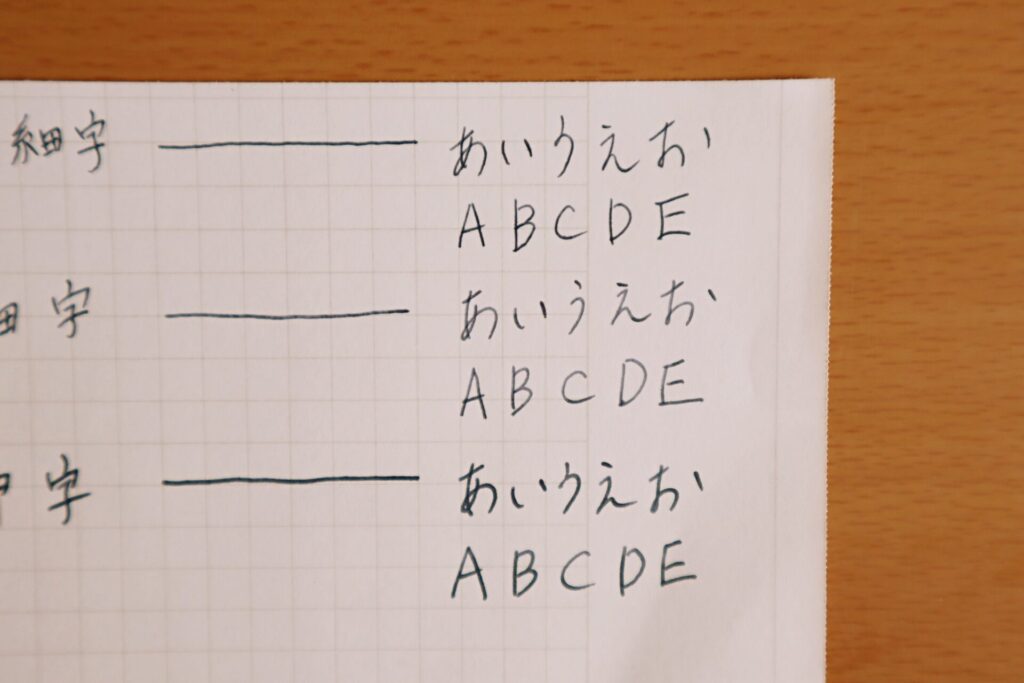 細字 あいうえお
ABCDE
字 あいうえお
ABCDE
字 あいうえお
ABCDE